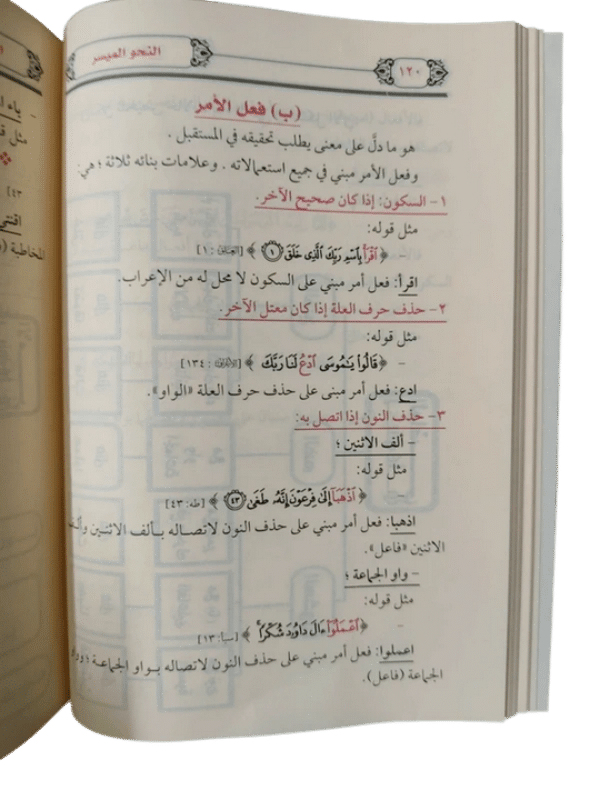 النحو الميسر
١٢٠
(ب) فعل الأمر
هو ما دلَّ على معنى يطلب تحقيقه في المستقبل .
وفعل الأمر مبني في جميع استعمالاته . وعلامات بنائه ثلاثة ؛ هي:
١- السكون: إذا كان صحيح الآخر.
مثل قوله:
- ﴿ ٱقْرَأْ بِٱسْمِ رَبِّكَ ٱلَّذِى خَلَقَ ۝١ ﴾ [العلق: ١]
اقرأ: فعل أمر مبني على السكون لا محل له من الإعراب.
٢- حذف حرف العلة إذا كان معتل الآخر.
مثل قوله:
- ﴿ قَالُوا۟ يَـٰمُوسَى ٱدْعُ لَنَا رَبَّكَ ﴾ [الأعراف: ١٣٤]
ادع: فعل أمر مبنى على حذف حرف العلة «الواو».
٣- حذف النون إذا اتصل به:
- ألف الاثنين ؛
مثل قوله:
- ﴿ ٱذْهَبَآ إِلَىٰ فِرْعَوْنَ إِنَّهُۥ طَغَىٰ ۝٤٣ ﴾ [طه: ٤٣]
اذهبا: فعل أمر مبني على حذف النون لاتصاله بألف الاثنين وألف
الاثنين «فاعل».
- واو الجماعة ؛
مثل قوله:
- ﴿ ٱعْمَلُوٓا۟ ءَالَ دَاوُۥدَ شُكْرًا ﴾ [سبأ: ١٣]
اعملوا: فعل أمر مبني على حذف النون لاتصاله بواو الجماعة ؛ وواو
الجماعة (فاعل).
- ياء
مثل
٤٣]
المخاطبة